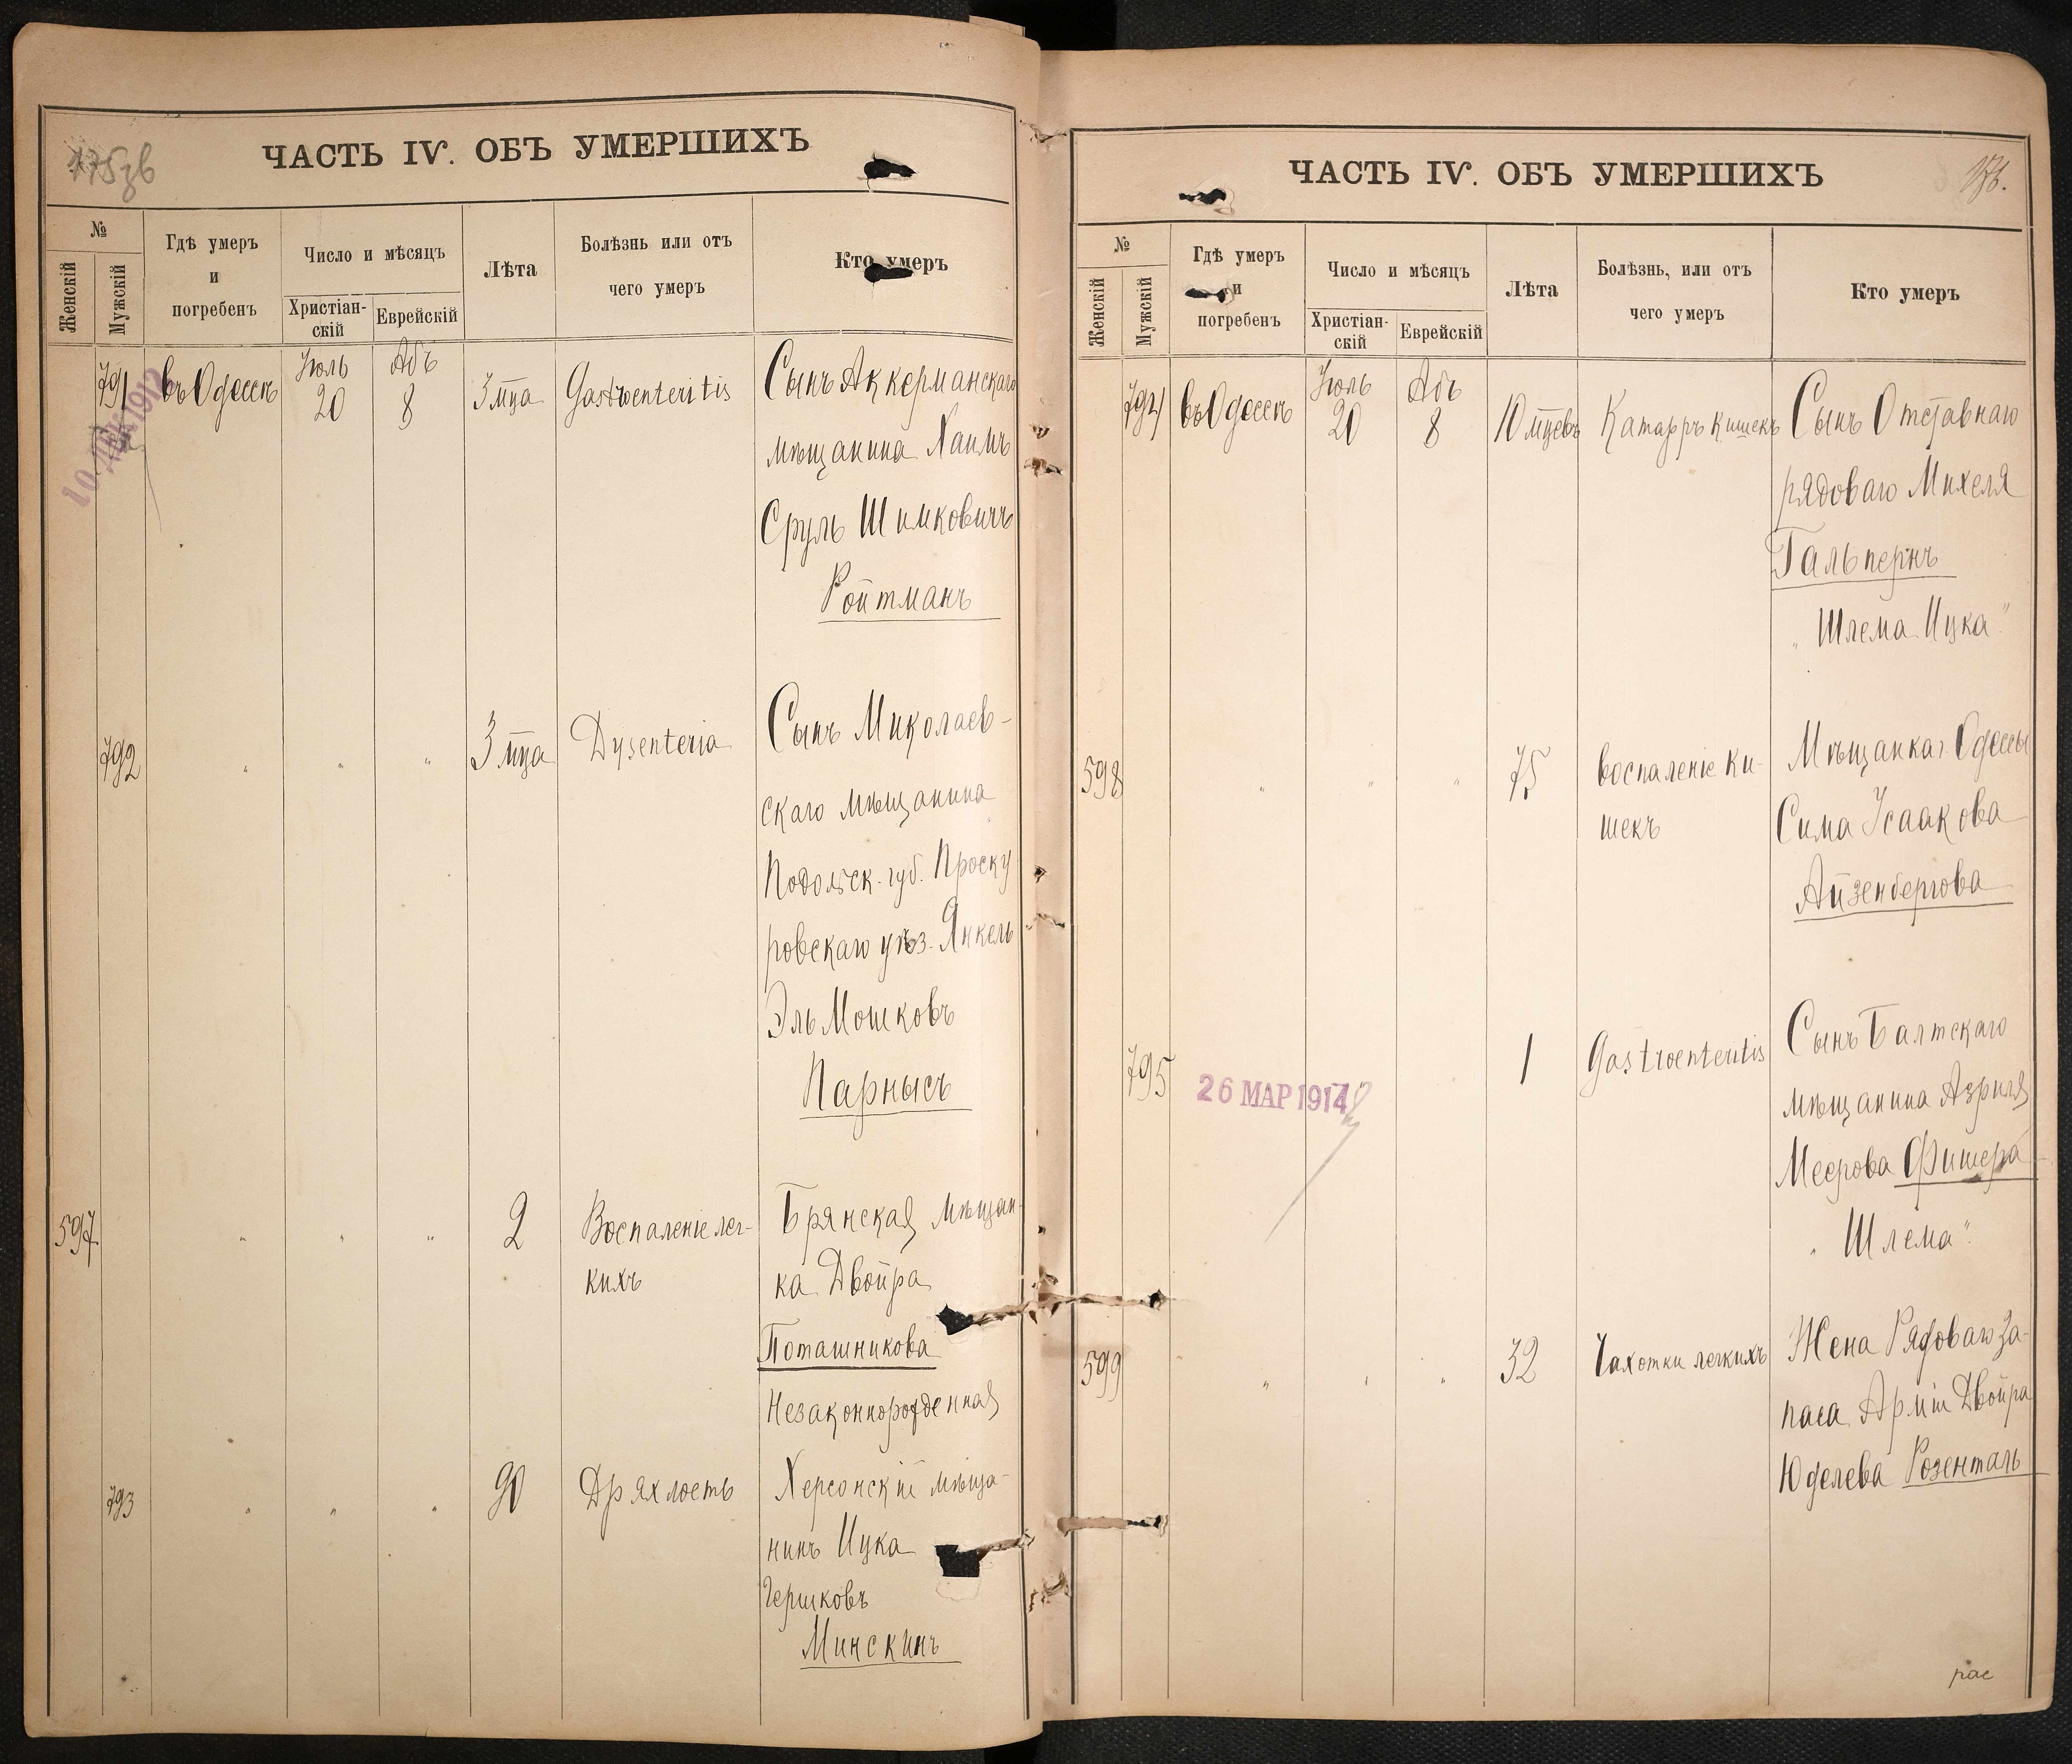 175зв
ЧАСТЬ IV. ОБЪ УМЕРШИХЪ
№
Женскій
Мужскій
Гдѣ умеръ
и
погребенъ
Число и мѣсяцъ
Христіан-
скій
Еврейскій
Лѣта
Болѣзнь или отъ
чего умеръ
Кто умеръ
791 въ Одессѣ Іюль 20 Абъ 8 3 мца Gastroenteritis Сынъ Аккерманскаго
10 ДЕК 1912
мѣщанина Хаимъ
Сруль Шимковичъ
Ройтманъ
792 " " " 3 мца Dysenteria Сынъ Николаев-
скаго мѣщанина
Подольск. губ. Проску
ровскаго уѣз. Янкель
Эль Мошковъ
Парнысъ
597 " " " 2 Воспаленіе лег- Брянская мѣщан-
кихъ ка Двойра
Поташникова
Незаконнорожденная
793 " " " 90 Дряхлость Херсонскій мѣща-
нинъ Ицка
Гершковъ
Минскинъ
176.
ЧАСТЬ IV. ОБЪ УМЕРШИХЪ
№
Женскій
Мужскій
Гдѣ умеръ
и
погребенъ
Число и мѣсяцъ
Христіан-
скій
Еврейскій
Лѣта
Болѣзнь, или отъ
чего умеръ
Кто умеръ
794 въ Одессѣ Іюль 20 Абъ 8 10 мцевъ Катарръ кишекъ Сынъ Отставнаго
рядоваго Михеля
Гальпернъ
"Шлема Ицка"
598 " " " 75 воспаленіе ки- Мѣщанка г. Одессы
шекъ Сима Исаакова
Айзенбергова
795 1 Gastroenteritis Сынъ Балтскаго
26 МАР 1914
мѣщанина Азриля
Меерова Фишера
"Шлема".
599 " " " 32 Чахотки легкихъ Жена Рядоваго За-
паса Арміи Двойра
Юделева Розенталь
рас